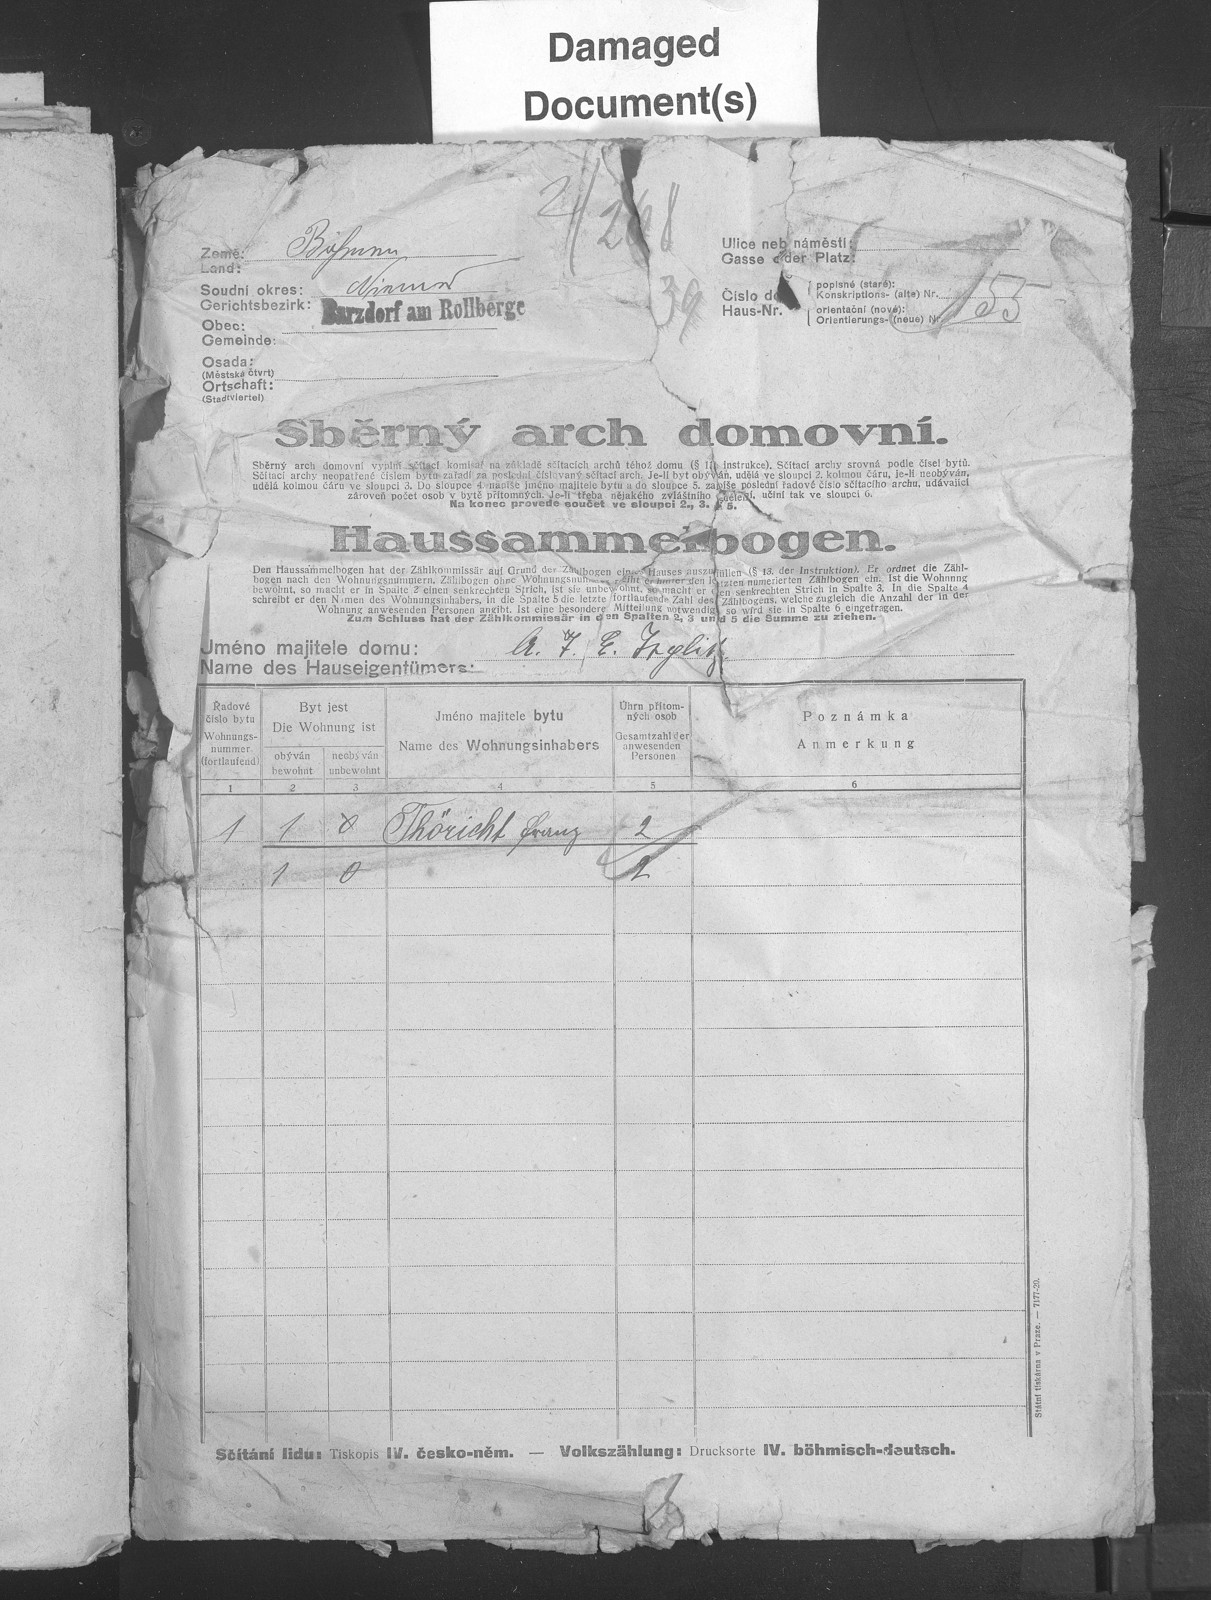 Damaged
Document(s)
Země:
Land:
Böhmen
Soudní okres:
Gerichtsbezirk:
Niemes
Barzdorf am Rollberge
Obec:
Gemeinde:
Osada:
(Městská čtvrt)
Ortschaft:
(Stadtviertel)
39
Ulice neb náměstí:
Gasse oder Platz:
Číslo
Haus-Nr.
popisné (staré):
Konskriptions- (alte) Nr.
orientační (nové):
Orientierungs- (neue) Nr.
155
Sběrný arch domovní.
Sběrný arch domovní vyplní sčítací komisař na základě sčítacích archů téhož domu (§ instrukce). Sčítací archy srovná podle čísel bytů.
Sčítací archy neopatřené číslem bytu zařadí za poslední číslovaný sčítací arch. Je-li byt obýván, udělá ve sloupci 2. kolmou čáru, je-li neobýván,
udělá kolmou čáru ve sloupci 3. Do sloupce 4. napíše jméno majitele bytu a do sloupce 5. zapíše poslední řadové číslo sčítacího archu, udávající
zároveň počet osob v bytě přítomných. Je-li třeba nějakého zvláštního sdělení, učiní tak ve sloupci 6.
Na konec provede součet ve sloupci 2., 3. a 5.
Haussammelbogen.
Den Haussammelbogen hat der Zählkommissär auf Grund der Zählbogen eines Hauses auszufüllen (§ 13. der Instruktion). Er ordnet die Zähl-
bogen nach den Wohnungsnummern. Zählbogen ohne Wohnungsnummer reiht er hinter den letzten numerierten Zählbogen ein. Ist die Wohnung
bewohnt, so macht er in Spalte 2 einen senkrechten Strich, ist sie unbewohnt, so macht er den senkrechten Strich in Spalte 3. In die Spalte 4
schreibt er den Namen des Wohnungsinhabers, in die Spalte 5 die letzte fortlaufende Zahl des Zählbogens, welche zugleich die Anzahl der in der
Wohnung anwesenden Personen angibt. Ist eine besondere Mitteilung notwendig, so wird sie in Spalte 6 eingetragen.
Zum Schluss hat der Zählkommissär in den Spalten 2, 3 und 5 die Summe zu ziehen.
Jméno majitele domu:
Name des Hauseigentümers:
A. T. E.
Řadové
číslo bytu
Wohnungs-
nummer
(fortlaufend)
Byt jest
Die Wohnung ist
obýván
bewohnt
neobýván
unbewohnt
Jméno majitele bytu
Name des Wohnungsinhabers
Úhrn přítom-
ných osob
Gesamtzahl der
anwesenden
Personen
Poznámka
Anmerkung
1 2 3 4 5 6
1 1 0 Thöricht Franz 2
1 0 2
Státní tiskárna v Praze. — 7177-20.
Sčítání lidu: Tiskopis IV. česko-něm. — Volkszählung: Drucksorte IV. böhmisch-deutsch.